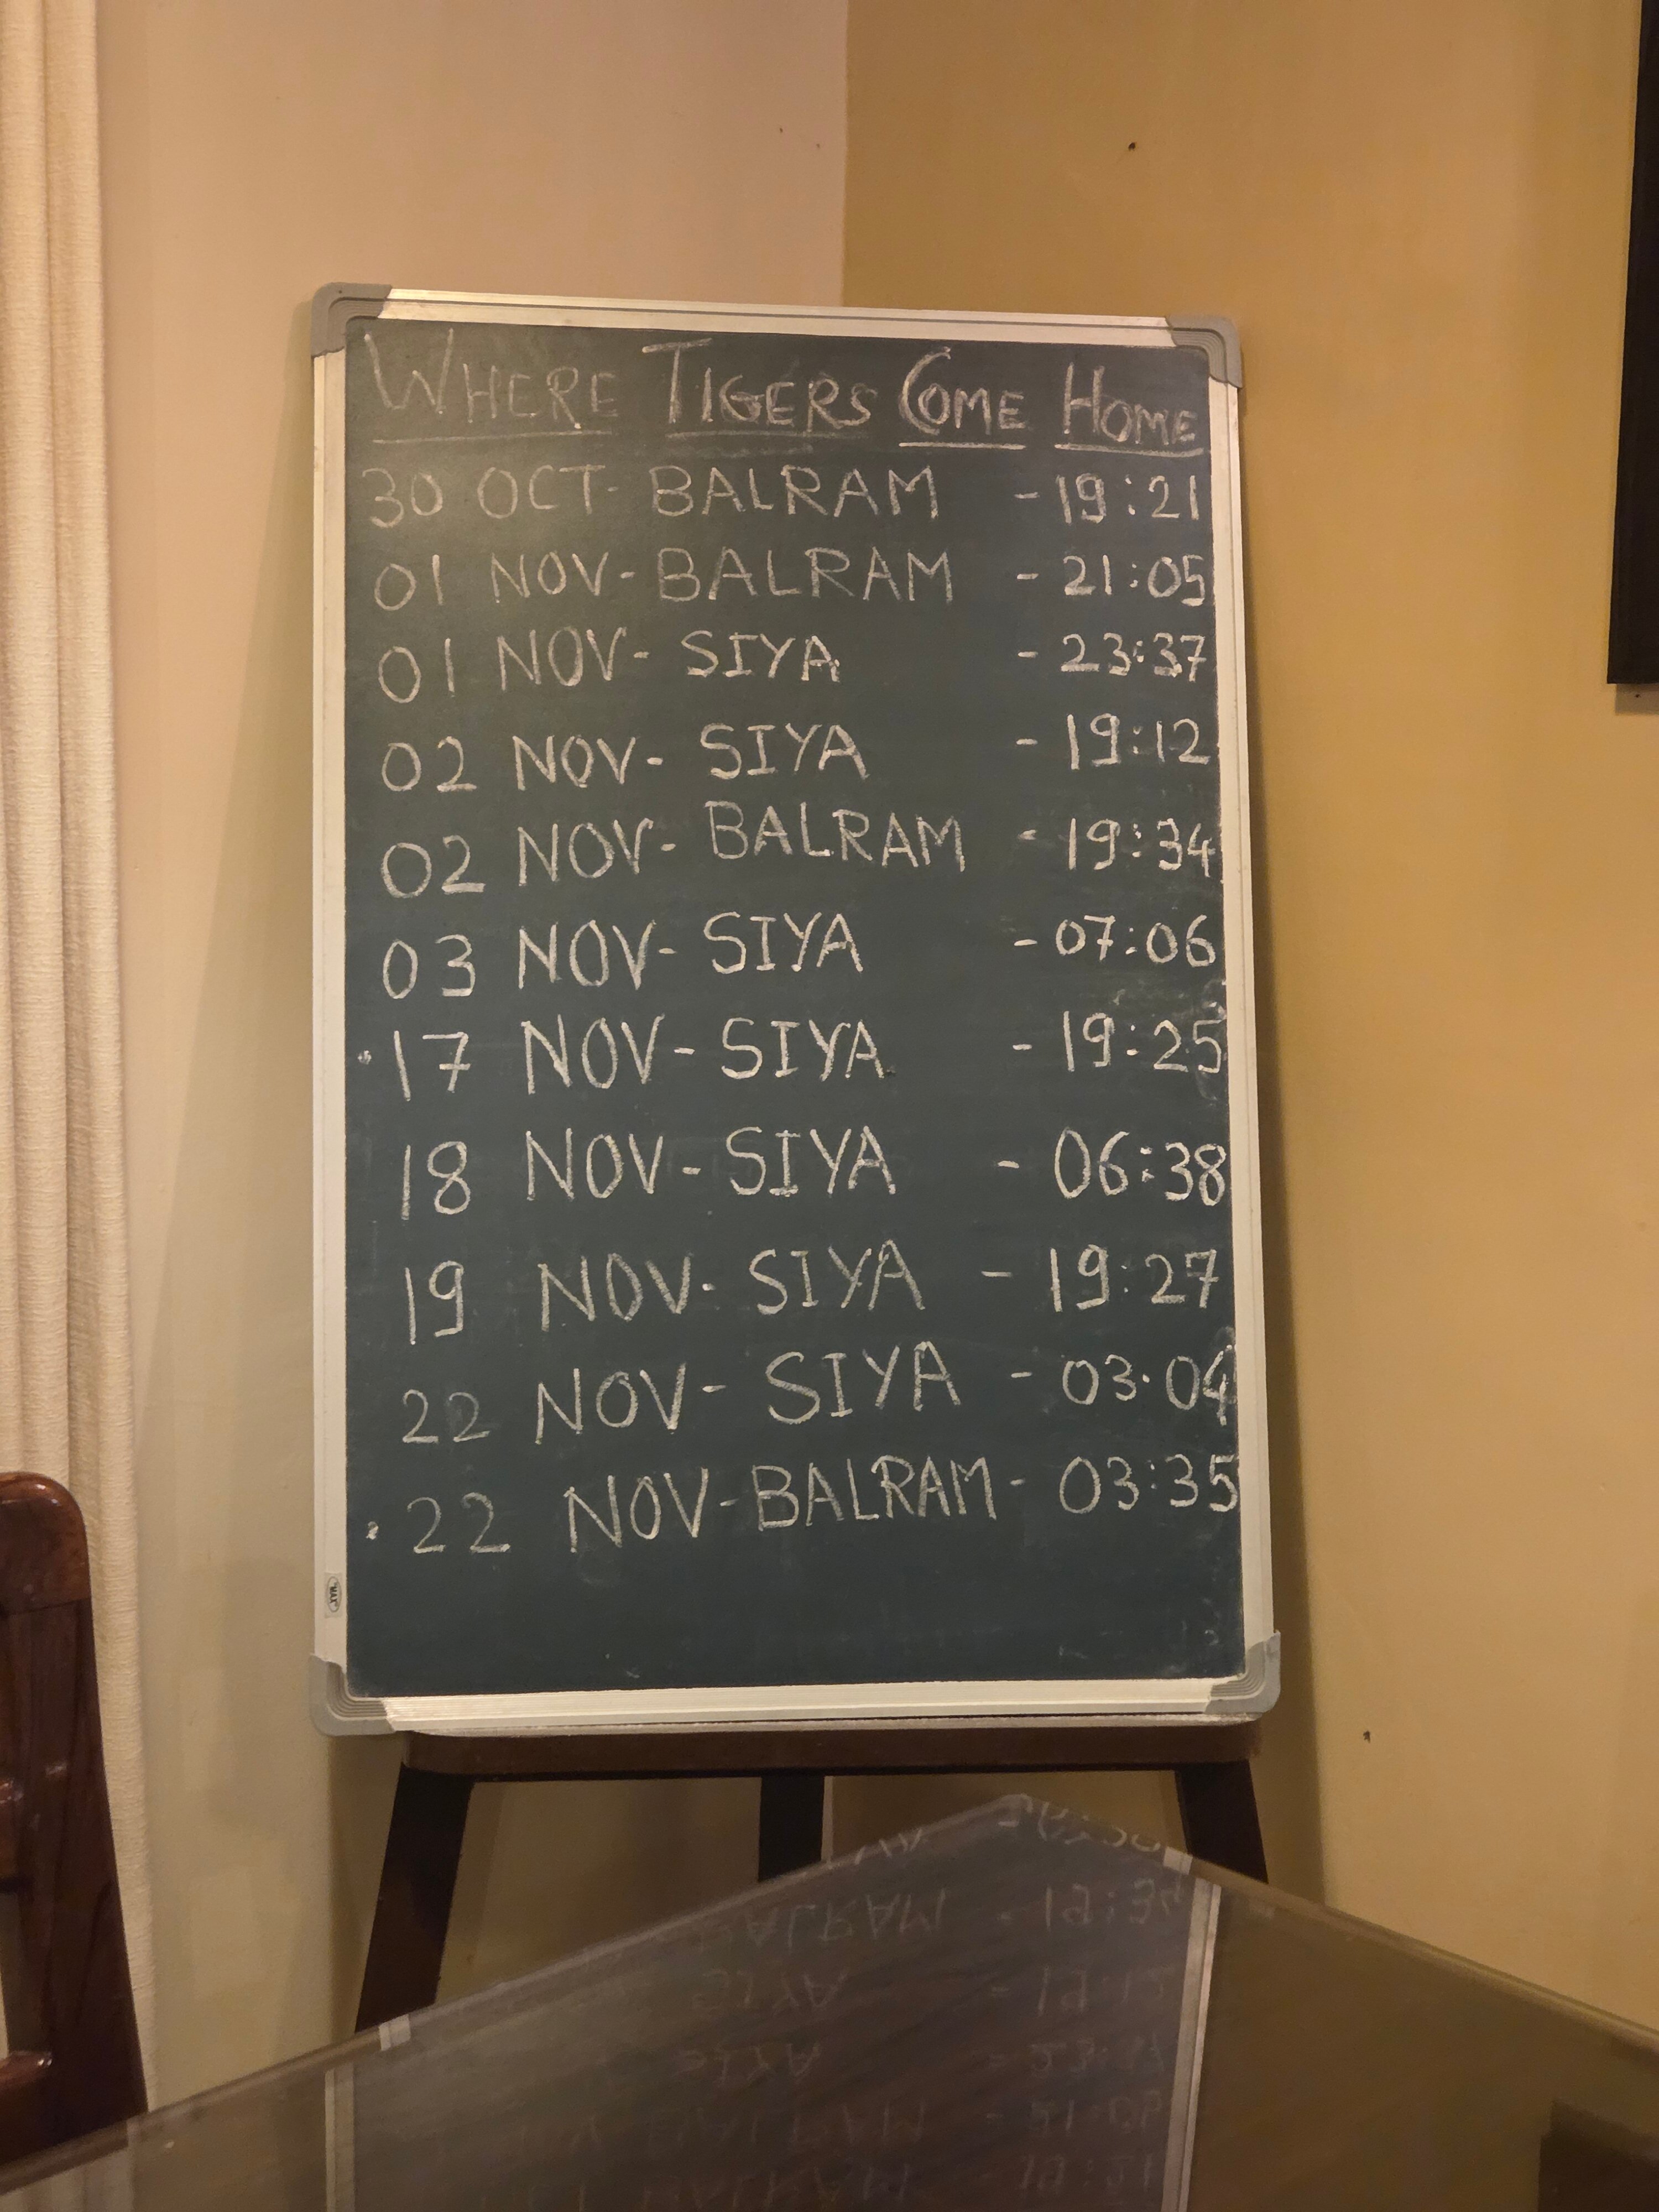 WHERE TIGERS COME HOME
30 OCT- BALRAM - 19:21
01 NOV- BALRAM - 21:05
01 NOV- SIYA - 23:37
02 NOV- SIYA - 19:12
02 NOV- BALRAM - 19:34
03 NOV- SIYA - 07:06
·17 NOV- SIYA - 19:25
18 NOV- SIYA - 06:38
19 NOV- SIYA - 19:27
22 NOV- SIYA - 03:04
·22 NOV- BALRAM - 03:35